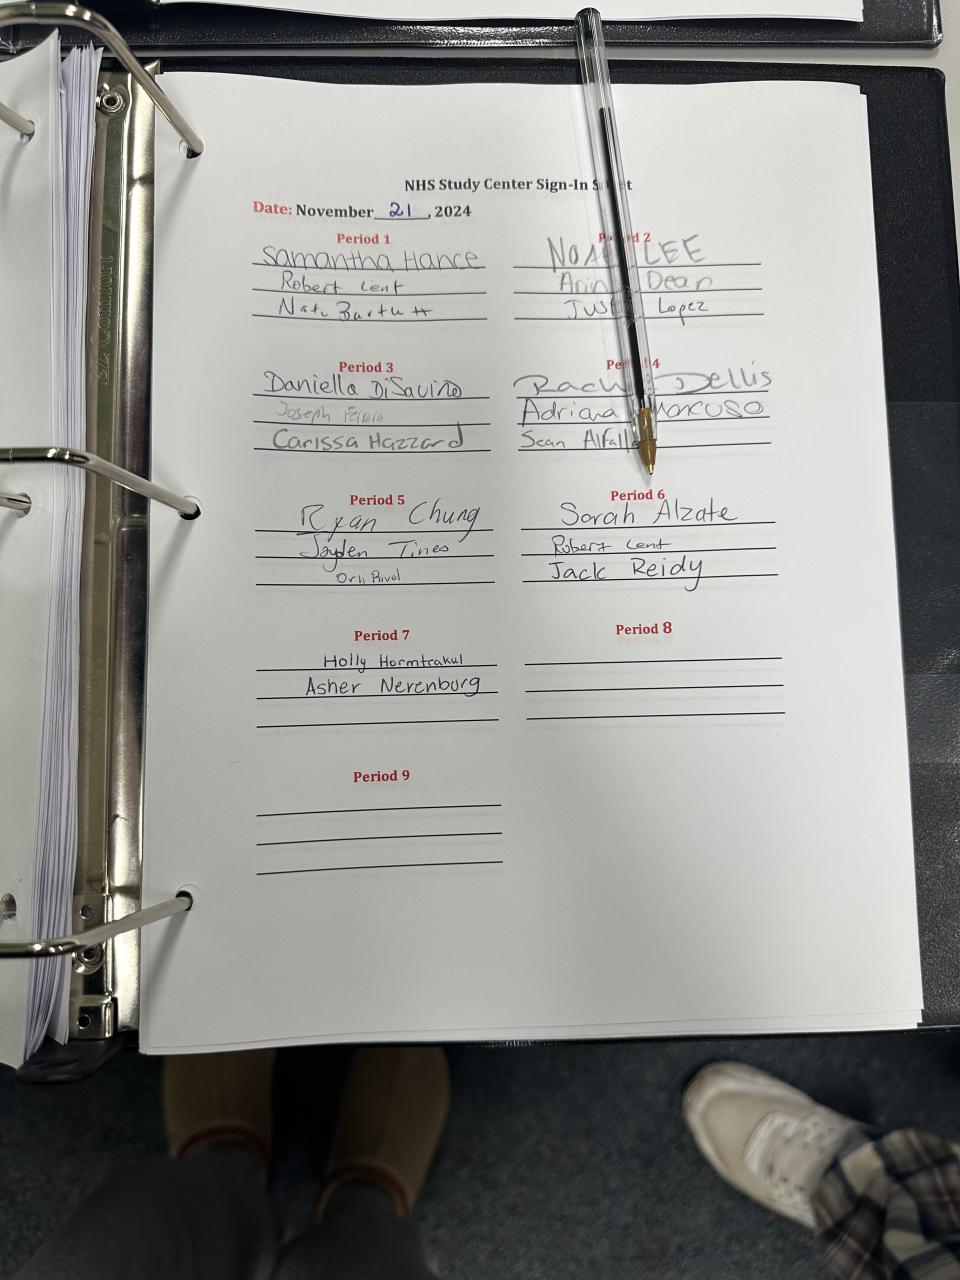 NHS Study Center Sign-In
Date: November 21, 2024
Period 1
Samantha Hance
Robert Lent
Nate
Period 2
LEE
Dean
Lopez
Period 3
Daniella DiSavino
Joseph
Carissa Hazzard
4
Dellis
Adriana Mancuso
Sean
Period 5
Ryan Chung
Jayden Tineo
Period 6
Sarah Alzate
Robert Lent
Jack Reidy
Period 7
Holly Hormtrakul
Asher Nerenburg
Period 8
Period 9